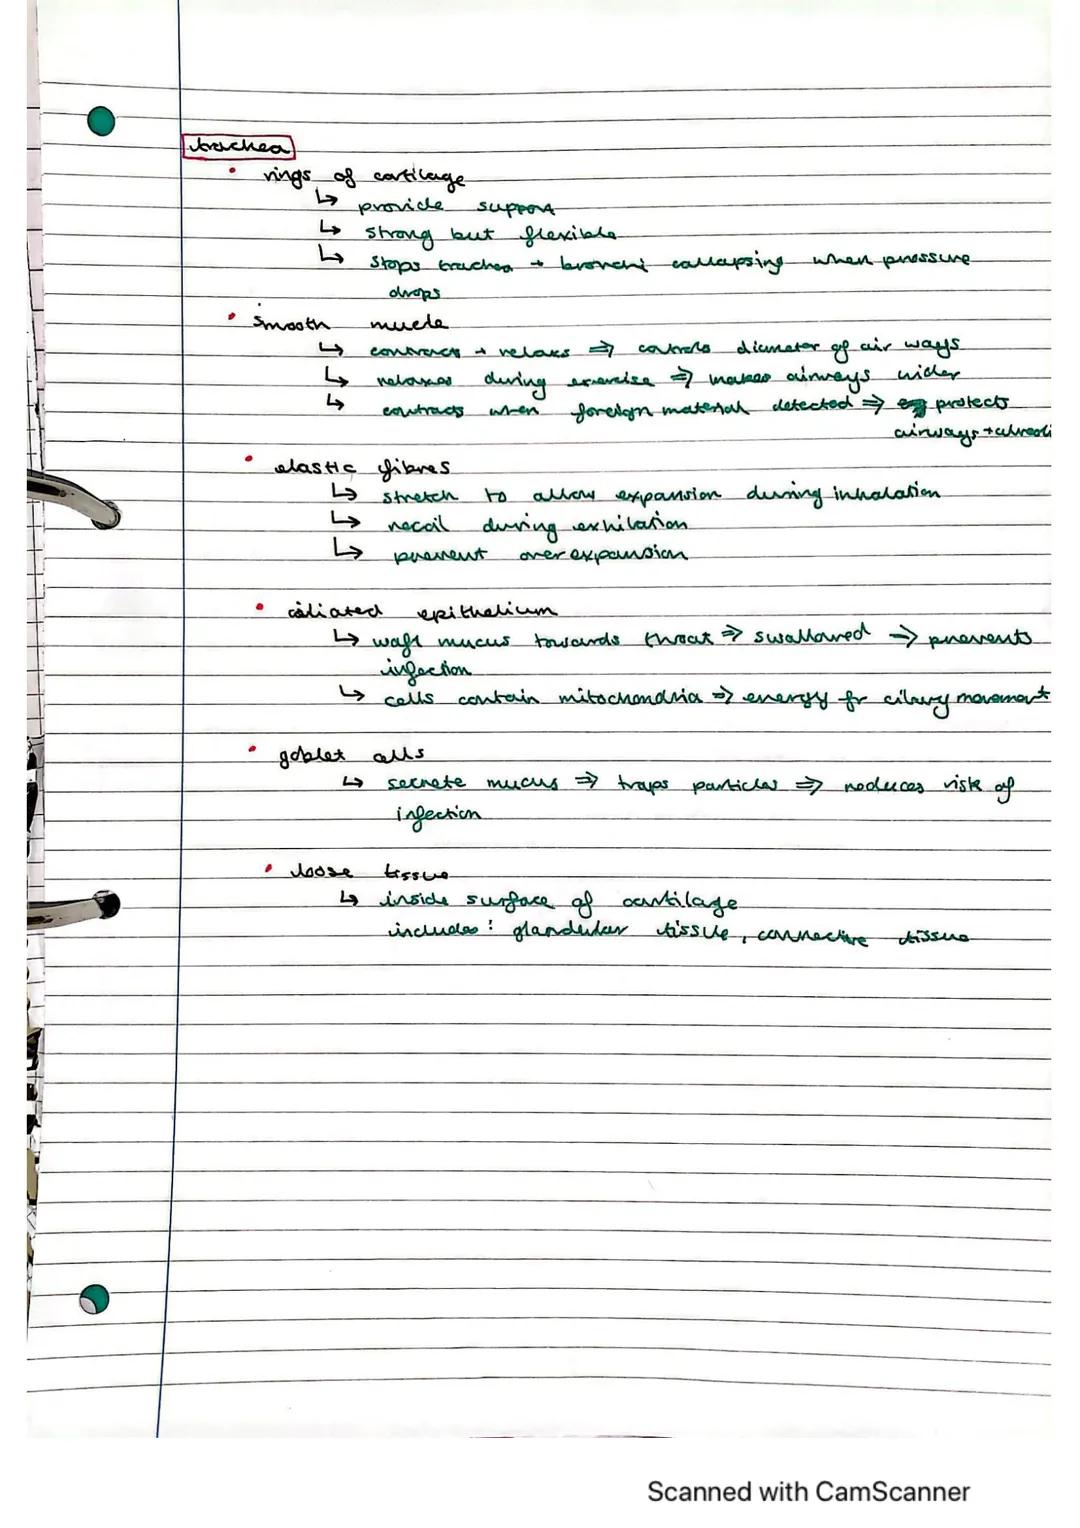 trachea
• rings of cartilage
↳ provide support
↳ strong but flexible
↳ stops trachea + bronchi collapsing when pressure
drops
• smooth muscle
↳ contracts + relaxs ⇒ controls diameter of air ways
↳ relaxes during exercise ⇒ makes airways wider
↳ contracts when foreign material detected ⇒ protects
airways + alveoli
• elastic fibres
↳ stretch to allow expansion during inhalation
↳ recoil during exhilation
↳ prevent over expansion
• ciliated epithelium
↳ waft mucus towards throat ⇒ swallowed → prevents
infection
↳ cells contain mitochondria ⇒ energy fr ciliary movement
• goblet cells
↳ secrete mucus ⇒ traps particles ⇒ reduces risk of
infection
• loose tissue
↳ inside surface of cartilage
includes: glandular tissue, connective tissue
Scanned with CamScanner